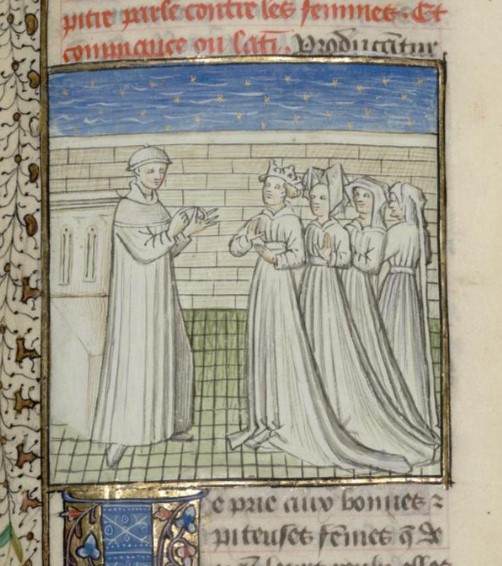 pitre parle contre les femmes . Et
commence ou latī . Producātur
e prie aux bonnes ⁊
piteuses fēmes q̄ de